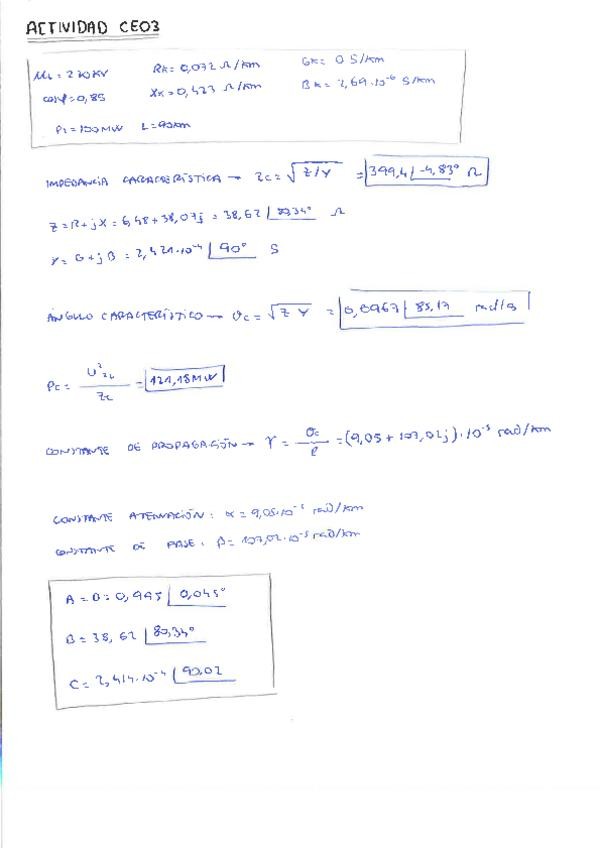 ACTIVIDAD CE03
UL = 220KV RK = 0,072 Ω/KM GK = 0 S/KM
cosφ = 0,85 XK = 0,423 Ω/KM BK = 2,69·10⁻⁶ S/KM
P2 = 100MW L = 90km
IMPEDANCIA CARACTERÍSTICA → Zc = √Z/Y = 399,4 |-4,83° Ω
Z = R+jX = 6,48 + 38,07j = 38,62 |80,34° Ω
Y = G+jB = 2,421·10⁻⁴ |90° S
ÁNGULO CARACTERÍSTICO → θc = √Z Y = 0,0967 |85,17
Pc = U² / Zc = 121,18MW
CONSTANTE DE PROPAGACIÓN → γ = θc / l = (9,05 + 107,02j)·10⁻⁵ rad/km
CONSTANTE ATENUACIÓN: α = 9,05·10⁻⁵ rad/km
CONSTANTE DE FASE: β = 107,02·10⁻⁵ rad/km
A = D = 0,995 |0,045°
B = 38,62 |80,34°
C = 2,414·10⁻⁴ |90,02